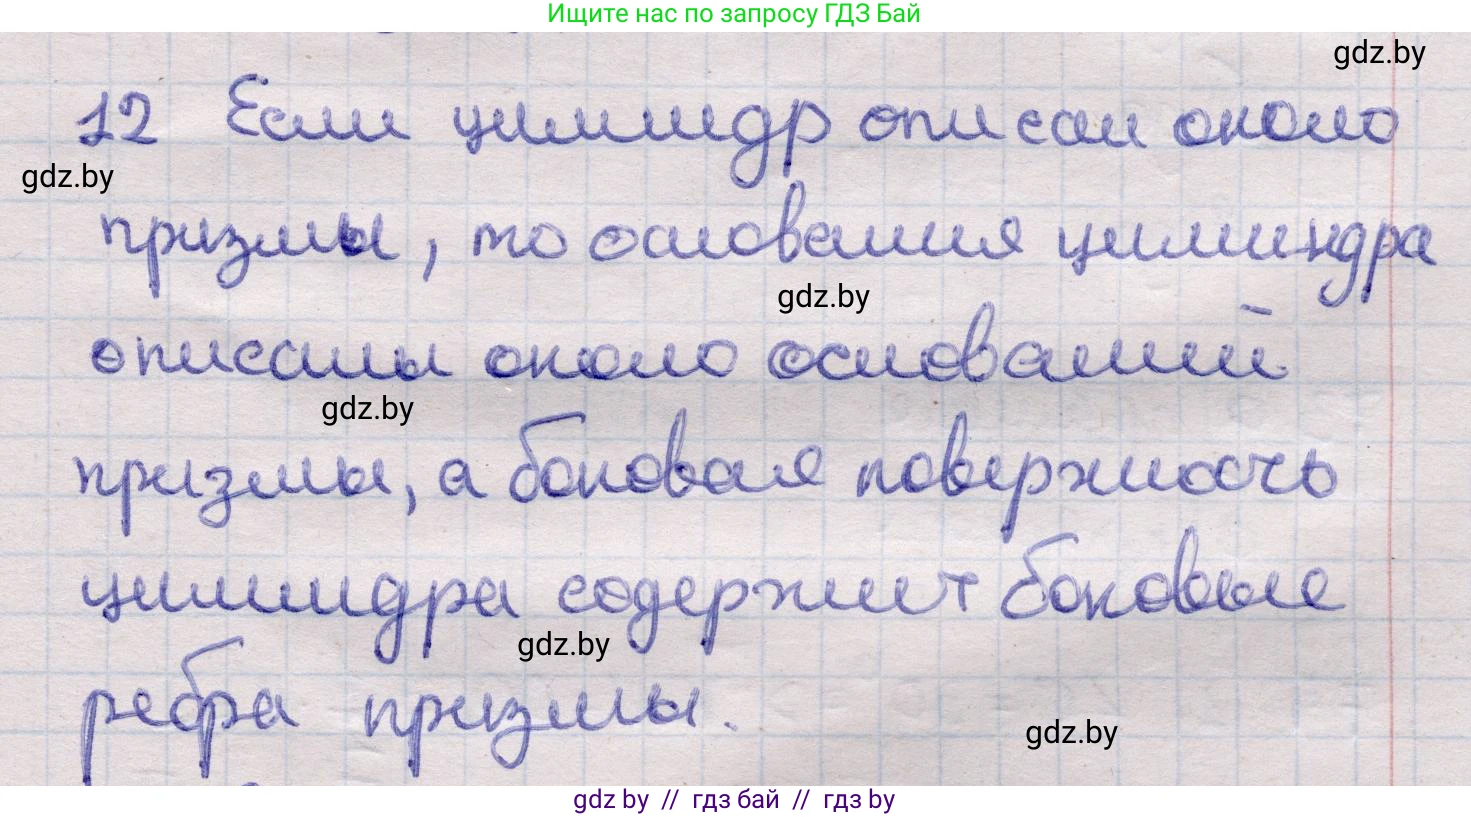 Ищите нас по запросу ГДЗ Бай
gdz.by
12 Если цилиндр описан около
gdz.by
призмы, то основания цилиндра
gdz.by
описаны около оснований
gdz.by
призмы, а боковая поверхность
цилиндра содержит боковые
gdz.by
ребра призмы.
gdz.by
gdz by // гдз бай // гдз by